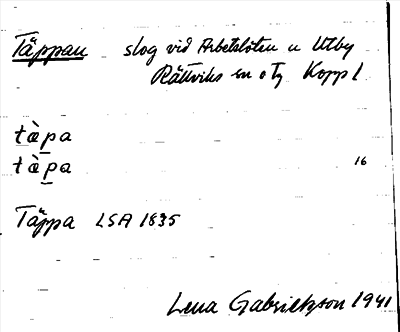 Täppan slog vid Arbetslöten u Utby
Rättviks sn o tg Kopp l
tàpa
tàpa
16
Täppa LSA 1835
Lena Gabrielsson 1941